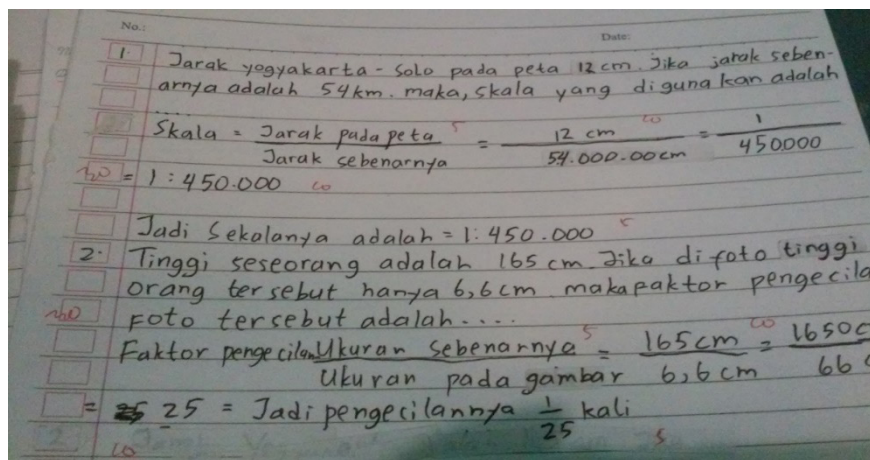 No.:
Date:
1. Jarak yogyakarta - Solo pada peta 12 cm. Jika jarak seben-
arnya adalah 54 km. maka, skala yang digunakan adalah
Skala = Jarak pada peta / Jarak sebenarnya = 12 cm / 54.000.00 cm = 1 / 450000
= 1 : 450.000
Jadi Sekalanya adalah = 1 : 450.000
2. Tinggi seseorang adalah 165 cm. Jika di foto tinggi
orang tersebut hanya 6,6 cm maka paktor pengecila
Foto tersebut adalah....
Faktor pengecilan Ukuran sebenarnya / Ukuran pada gambar = 165 cm / 6,6 cm = 1650 c / 66 c
= 25 = Jadi pengecilannya 1/25 kali